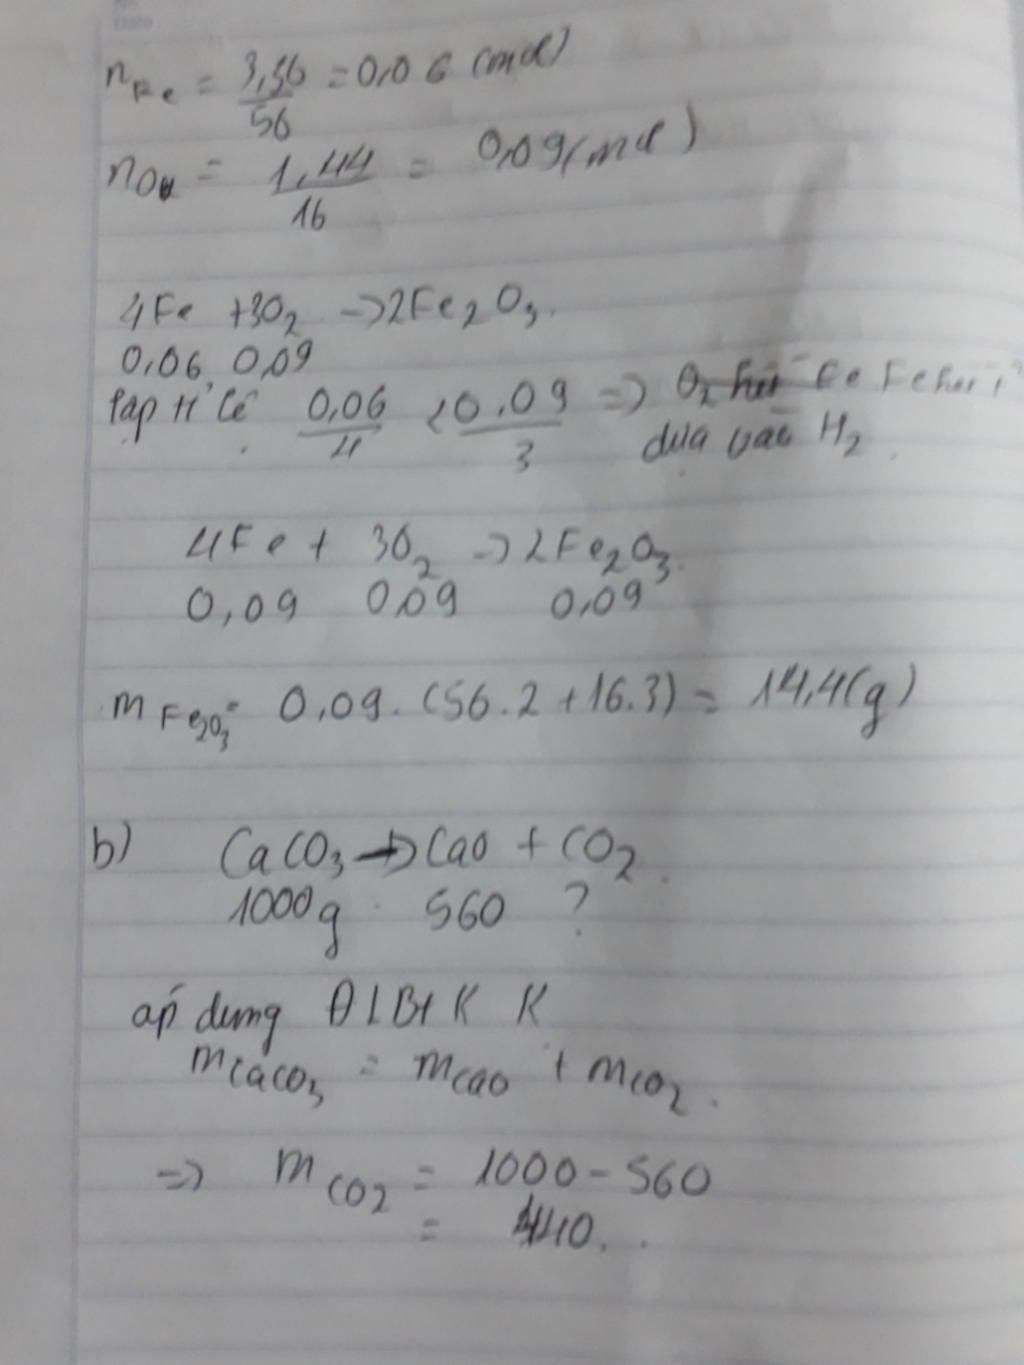 nFe = 3,36/56 = 0,06 (mol)
nO = 1,44/16 = 0,09 (mol)
4Fe + 3O2 -> 2Fe2O3.
0,06 0,09
lập tỉ lệ 0,06/4 < 0,09/3 => O2 hết Fe Fe hết
dựa vào H2.
4Fe + 3O2 -> 2Fe2O3.
0,09 0,09 0,09
mFe2O3 = 0,09.(56.2+16.3) = 14,4(g)
b) CaCO3 -> CaO + CO2.
1000g 560 ?
áp dụng ĐLBTKK
mCaCO3 = mCaO + mCO2.
=> mCO2 = 1000-560
= 440.